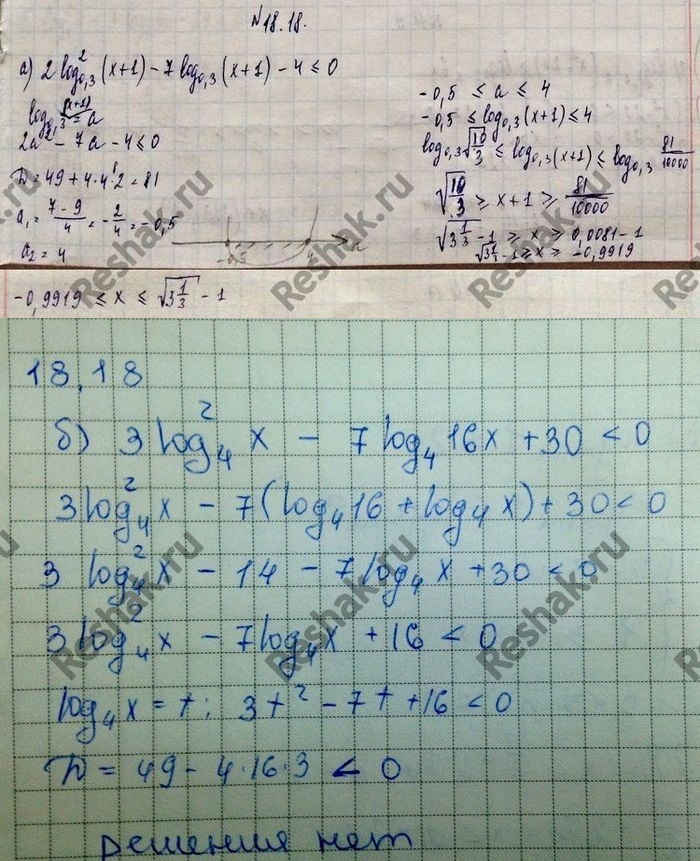 №18.18.
а) 2 log²₀,₃ (x+1) - 7 log₀,₃ (x+1) - 4 ≤ 0
log₀,₃ (x+1) = a
2a² - 7a - 4 ≤ 0
D = 49 + 4·4·2 = 81
a₁ = (7-9)/4 = -2/4 = -0,5
a₂ = 4
-0,5 4 a
-0,5 ≤ a ≤ 4
-0,5 ≤ log₀,₃ (x+1) ≤ 4
log₀,₃ √(10/3) ≤ log₀,₃ (x+1) ≤ log₀,₃ 81/10000
√(10/3) ≥ x+1 ≥ 81/10000
√(3 1/3) - 1 ≥ x ≥ 0,0081 - 1
√(3 1/3) - 1 ≥ x ≥ -0,9919
-0,9919 ≤ x ≤ √(3 1/3) - 1
18,18
б) 3 log²₄ x - 7 log₄ 16x + 30 < 0
3 log²₄ x - 7(log₄ 16 + log₄ x) + 30 < 0
3 log²₄ x - 14 - 7 log₄ x + 30 < 0
3 log²₄ x - 7 log₄ x + 16 < 0
log₄ x = t; 3t² - 7t + 16 < 0
D = 49 - 4·16·3 < 0
решения нет
Reshak.ru
Reshak.ru
Reshak.ru
Reshak.ru
Reshak.ru
Reshak.ru